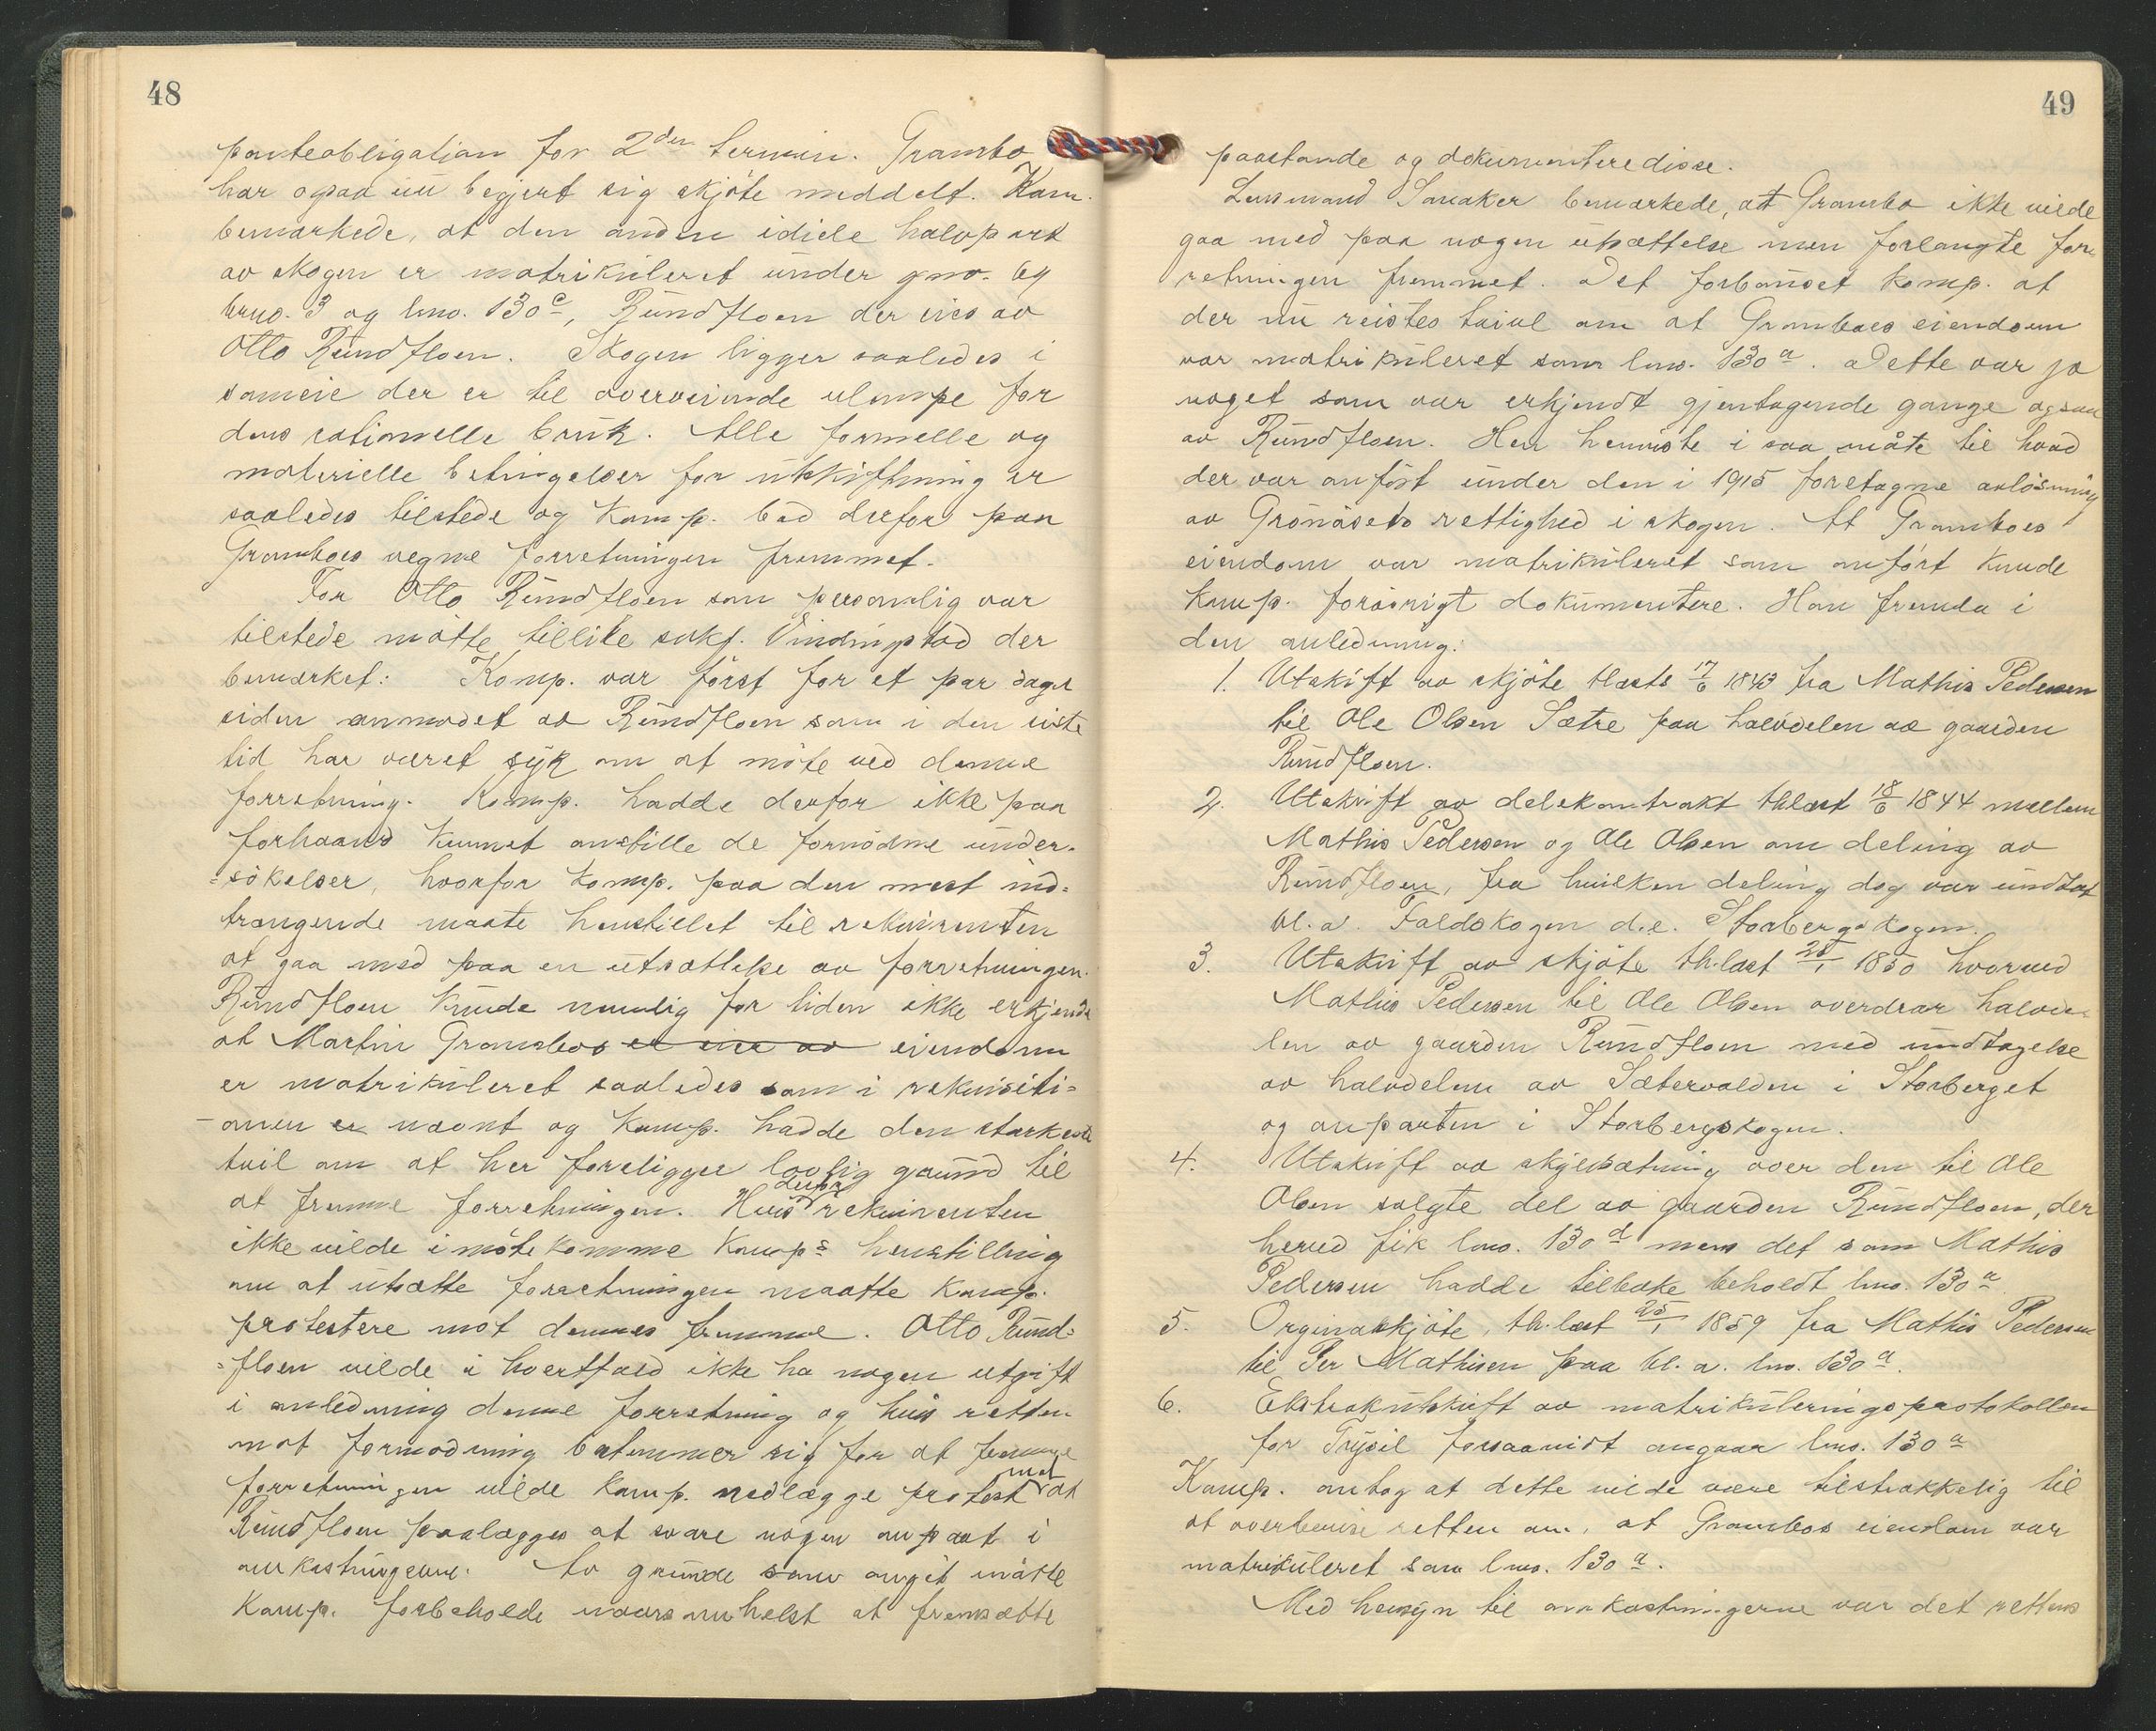 48
panteobligation for 2den termin. Grambo
har ogsaa nu begjert sig skjöte meddelt. Kom.
bemærkede, at den anden ideele halvpart
av skogen er matrikuleret under gno. og
brno. 3 og lno. 130c, Rundfloen der eies av
Otto Rundfloen. Skogen ligger saaledes i
sameie der er til overveiende ulempe for
dens rationelle bruk. Alle formelle og
materielle betingelser for utskiftning er
saaledes tilstede og Komp. bad derfor paa
Gramboes vegne forretningen fremmet.
For Otto Rundfloen som personlig var
tilstede mötte tillike sakf. Vindingstad der
bemærket: Komp. var först for et par dager
siden anmodet av Rundfloen som i den siste
tid har været syk om at möte ved denne
forretning. Komp. hadde derfor ikke paa
forhaand kunnet anstille de fornödne under-
=sökelser, hvorfor komp. paa den mest ind=
trængende maate henstillet til rekvirenten
at gaa med paa en utsættelse av forretningen.
Rundfloen kunde nemlig for tiden ikke erkjende
at Martin Gramboes eiendom
er matrikuleret saaledes som i rekvisiti=
-onen er nævnt og Komp. hadde den sterkeste
tvil om at her foreligger lovlig grund til
at fremme forretningen. Hvis derfor rekvirenten
ikke vilde imötekomme Komps henstilling
om at utsætte forretningen maatte Komp.
protestere mot dennes fremme. Otto Rund=
=floen vilde i hvertfald ikke ha nogen utgift
i anledning denne forretning og hvis retten
mot formodning bestemmer sig for at fremme
forretningen vilde Komp. nedlægge protest mot at
Rundfloen paalægges at svare nogen anpart i
omkostningerne. Av grunde som angit maatte
Komp. forbeholde naarsomhelst at fremsætte
49
paastande og dokumentere disse.
Lensmand Sanaker bemærkede, at Grambo ikke vilde
gaa med paa nogen utsættelse men forlangte for-
retningen fremmet. Det forbauset Komp. at
der nu reistes tvivl om at Gramboes eiendom
var matrikuleret som lno. 130a. Dette var jo
noget som var erkjendt gjentagende gange ogsaa
av Rundfloen. Han henviste i saa måte til hvad
der var anfört under den i 1915 foretagne avlösning
av Grönåsets rettighed i skogen. At Gramboes
eiendom var matrikuleret som anfört kunde
Komp. forövrigt dokumentere. Han fremla i
den anledning:
1. Utskrift av skjöte tlæste 17/6 1843 fra Mathis Pedersen
til Ole Olsen Sætre paa halvdelen av gaarden
Rundfloen.
2. Utskrift av delekontrakt thlæst 18/6 1844 mellem
Mathis Pedersen og Ole Olsen om deling av
Rundfloen, fra hvilken deling dog var undtat
bl.a. Faldskogen d.e. Storbergskogen.
3. Utskrift av skjöte th.læst 25/1 1850 hvorved
Mathis Pedersen til Ole Olsen overdrar halvde-
len av gaarden Rundfloen med undtagelse
av halvdelen av Sætervolden i Storberget
og anparten i Storbergskogen.
4. Utskrift av skyldsætning over den til Ole
Olsen solgte del av gaarden Rundfloen, der
herved fik lno. 130d mens det som Mathis
Pedersen hadde tilbake beholdt lno. 130a
5. Orginalskjöte, th.læst 25/1 1859 fra Mathis Pedersen
til Per Mathisen paa bl.a. lno. 130a.
6. Ekstraktutskrift av matrikuleringsprotokollen
for Trysil forsaavidt angaar lno. 130a
Komp. antog at dette vilde være tilstrækkelig til
at overbevise retten om, at Gramboes eiendom var
matrikuleret som lno. 130a.
Med hensyn til omkostningerne var det rettens